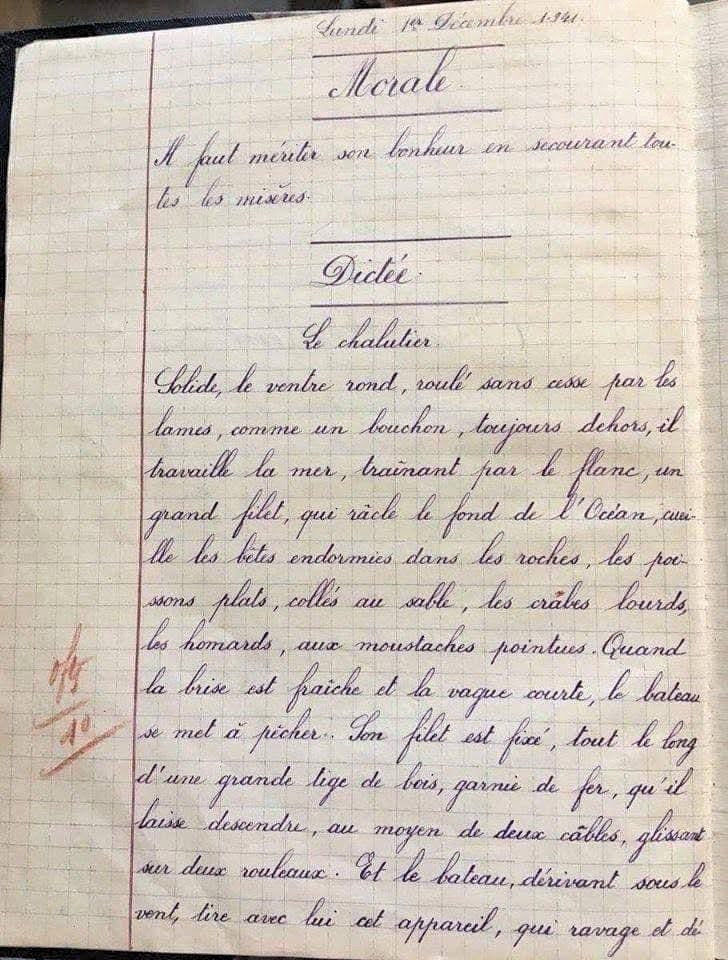 Lundi 1er Décembre 1941.
Morale.
Il faut mériter son bonheur en secourant tou-
tes les misères.
Dictée.
Le chalutier.
Solide, le ventre rond, roulé sans cesse par les
lames, comme un bouchon, toujours dehors, il
travaille la mer, traînant par le flanc, un
grand filet, qui râcle le fond de l'Océan, cuei-
lle les bêtes endormies dans les roches, les poi-
ssons plats, collés au sable, les crâbes lourds,
les homards, aux moustaches pointues. Quand
la brise est fraîche et la vague courte, le bateau
se met à pêcher.. Son filet est fixé, tout le long
d'une grande tige de bois, garnie de fer, qu'il
laisse descendre, au moyen de deux câbles, glissant
sur deux rouleaux. Et le bateau, dérivant sous le
vent, tire avec lui cet appareil, qui ravage et dé
10